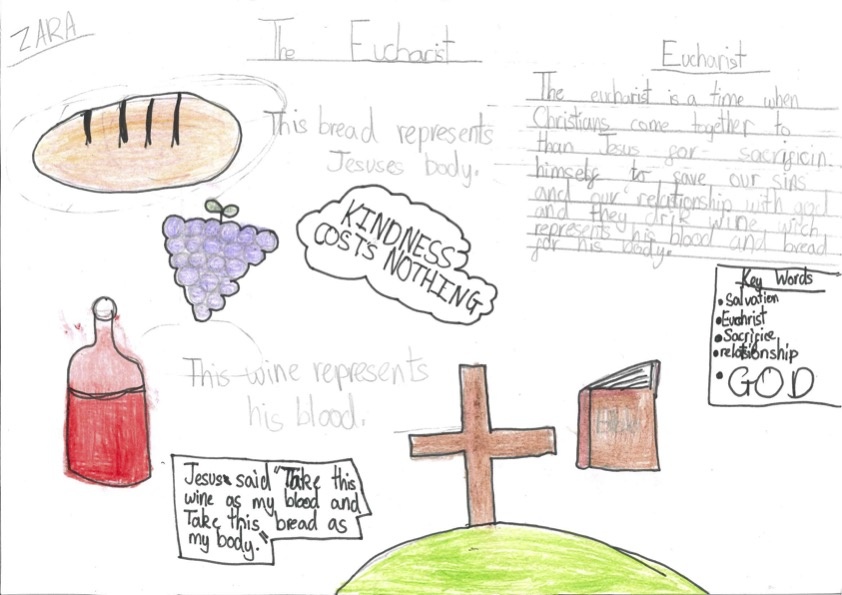 ZARA
The Eucharist
This bread represents
Jesuses body.
KINDNESS
COSTS NOTHING
This wine represents
his blood.
Jesus said "Take this
wine as my blood and
Take this bread as
my body."
Eucharist
The eucharist is a time when
Christians come together to
than Jesus for sacrificin
himself to save our sins
and our relationship with god
and they drik wine witch
represents his blood and bread
for his body.
Key Words
• Salvation
• Sacrifice
• relationship
• GOD